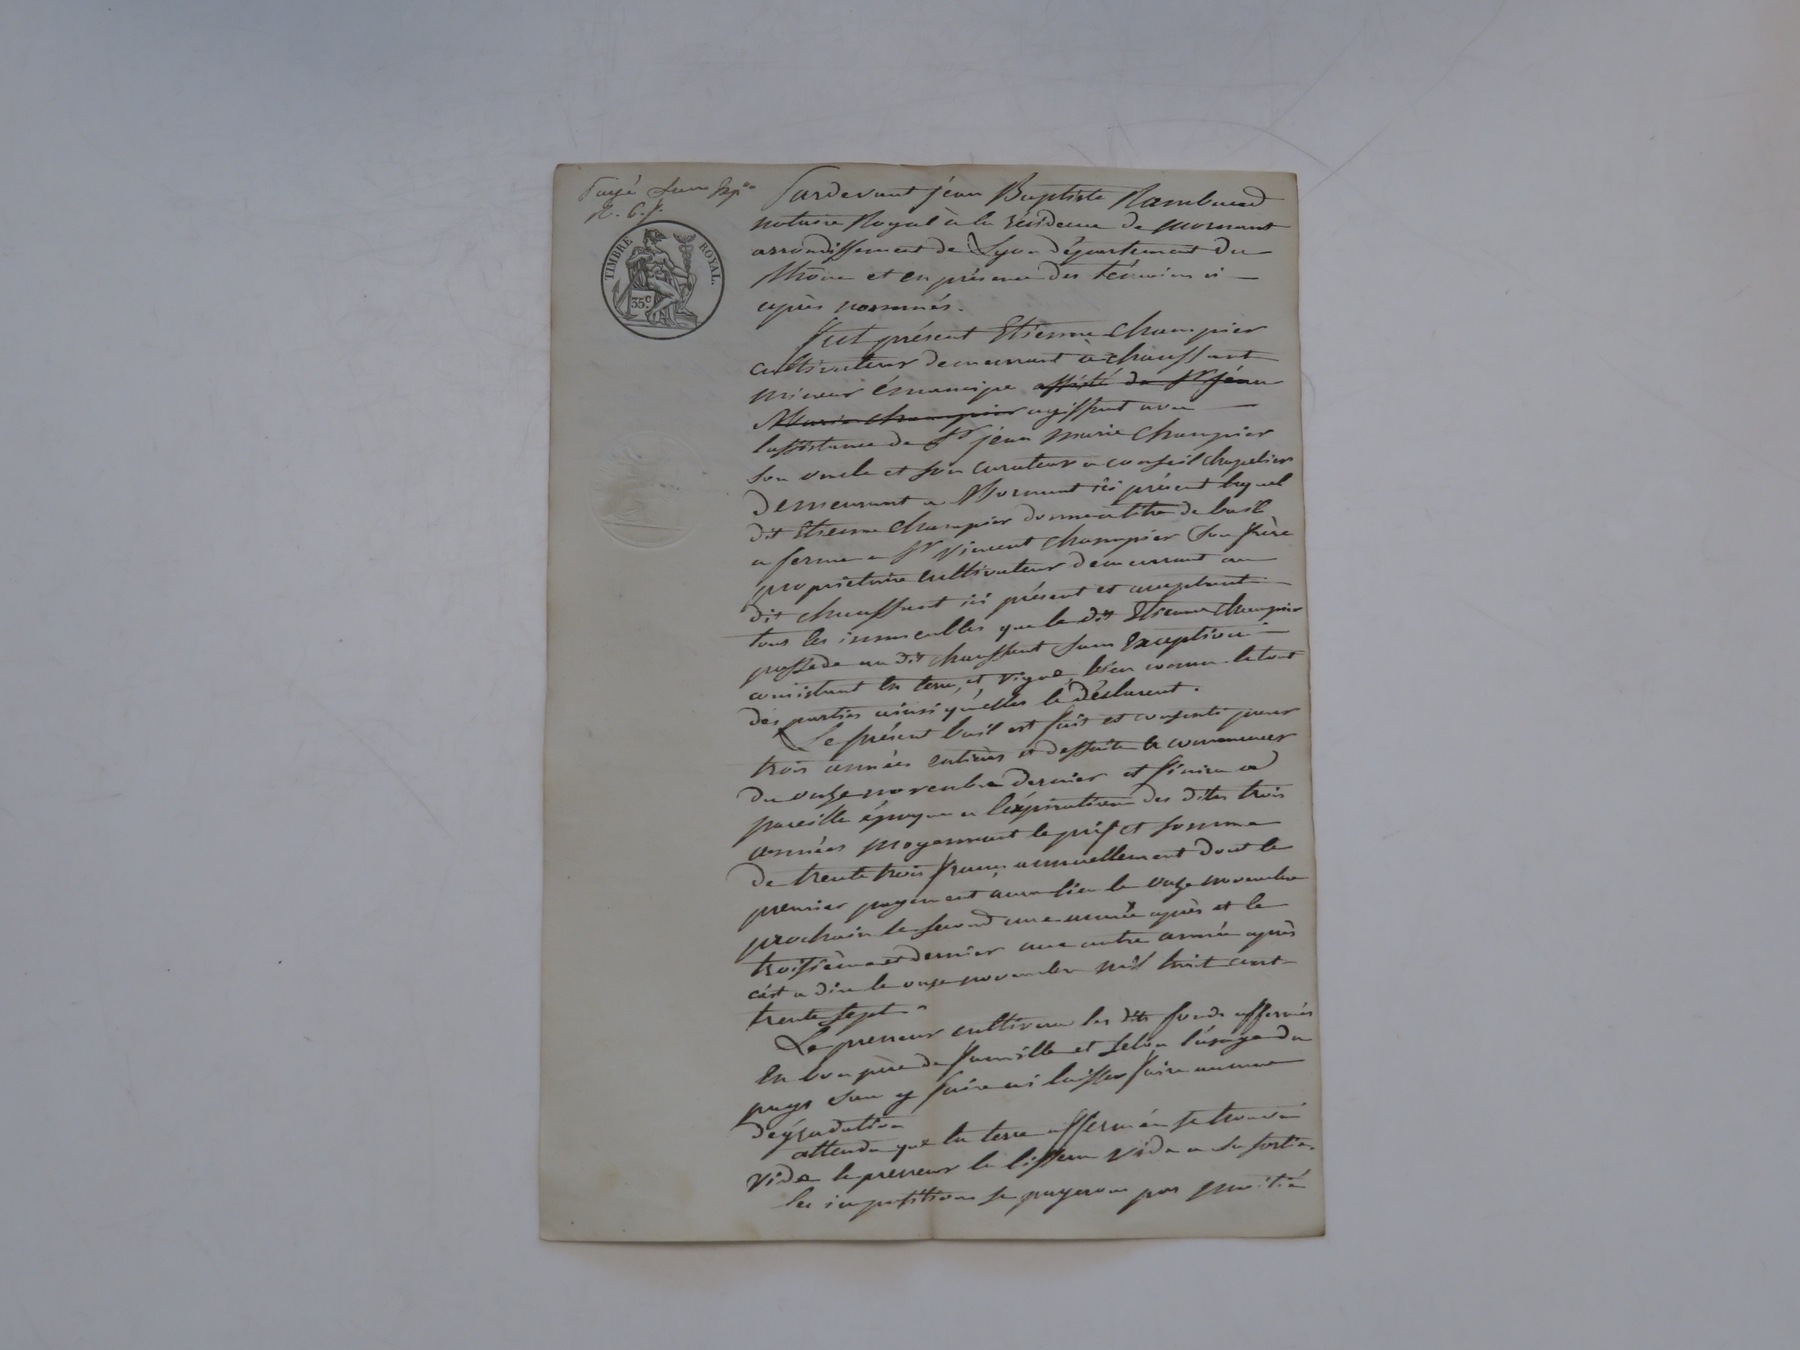 Pardevant jéan Baptiste Rambaud
notaire Royal à la résidence de mornant
TIMBRE ROYAL.
35 c.
arrondissement de Lyon département du
Rhône et en présence des témoins ci
après nommés.
fut présent Etienne Champier
cultivateur demeurant à chaussant
mineur émancipé assisté de Sr jéan
Marie Champier agissant avec
lassistance de Sr jéan marie Champier
son oncle et son curateur a conseil chapelier
demeurant a Mornant ici présent lequel
dit Etienne Champier donne a titre de bail
a ferme a Sr Vincent Champier Son frère
propriétaire cultivateur demeurant au
dit chaussant ici présent et acceptant
tous les immeubles que le dit Etienne Champier
possède au dit chaussant sans exception
consistant en terre, et vigne, bien connu le tout
des parties ainsi quelles le déclarent.
Le présent bail est fait et consenti pour
trois années entières et desuite a commencer
du onze novembre dernier et finira a
pareille époque a l'éxpiration des dites trois
années moyennant le prix et somme
de trente trois francs annuellement dont le
premier payement aura lieu le onze novembre
prochain le second une année après et le
troisième et dernier une autre année après
cést a dire le onze novembre mil huit cent
trente sept
Le preneur cultivera les dits fonds affermés
En bon père de famille et selon l'usage du
pays sans y faire ni laisser faire aucune
dégradation
attendu que la terre affermée se trouve
vide le preneur la lissera vide a sa sortie.
les impositions se payeron par moitié